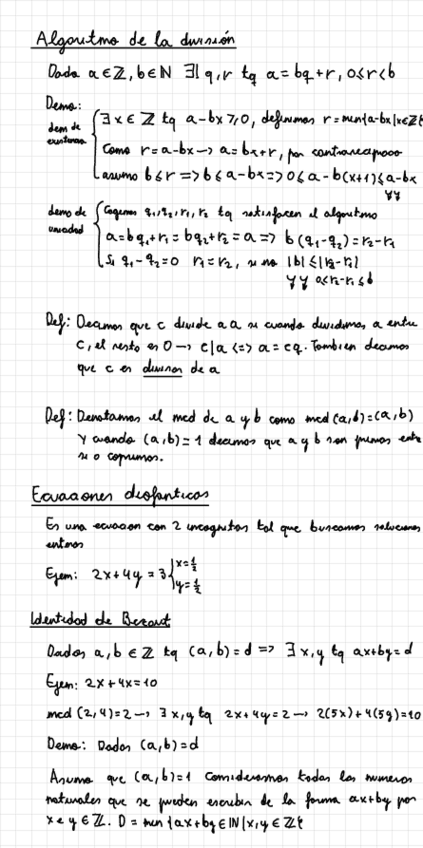 Algoritmo de la división
Dada a ∈ ℤ, b ∈ ℕ ∃! q, r tq a = bq + r, 0 ≤ r < b
Demo:
dem de existencia
∃ x ∈ ℤ tq a - bx ≥ 0, definimos r = min{a-bx | x ∈ ℤ}
Como r = a-bx → a = bx + r, por contrarecíproco
asumo b ≤ r => b ≤ a - bx => 0 ≤ a - b(x+1) ≤ a - bx
demo de unicidad
Cogemos q₁, q₂, r₁, r₂ tq satisfacen el algoritmo
a = bq₁ + r₁ = bq₂ + r₂ = a => b(q₁ - q₂) = r₂ - r₁
Si q₁ - q₂ = 0 r₁ = r₂, si no |b| ≤ |r₂ - r₁|
0 ≤ r₂ - r₁ ≤ b
Def: Decimos que c divide a a si cuando dividimos a entre
c, el resto es 0 → c|a <=> a = cq. Tambien decimos
que c es divisor de a
Def: Denotamos el mcd de a y b como mcd(a,b) = (a,b)
Y cuando (a,b) = 1 decimos que a y b son primos entre
si o coprimos.
Ecuaciones diofanticas
Es una ecuacion con 2 incognitas tal que buscamos soluciones
enteras
Ejem: 2x + 4y = 3 { x = 1/2
y = 1/2
Identidad de Bezout
Dados a, b ∈ ℤ tq (a,b) = d => ∃ x, y tq ax + by = d
Ejem: 2x + 4x = 10
mcd (2,4) = 2 → ∃ x, y tq 2x + 4y = 2 → 2(5x) + 4(5y) = 10
Demo: Dados (a,b) = d
Asumo que (a,b) = 1 consideramos todos los numeros
naturales que se pueden escribir de la forma ax + by por
x e y ∈ ℤ. D = min {ax + by ∈ ℕ | x, y ∈ ℤ}